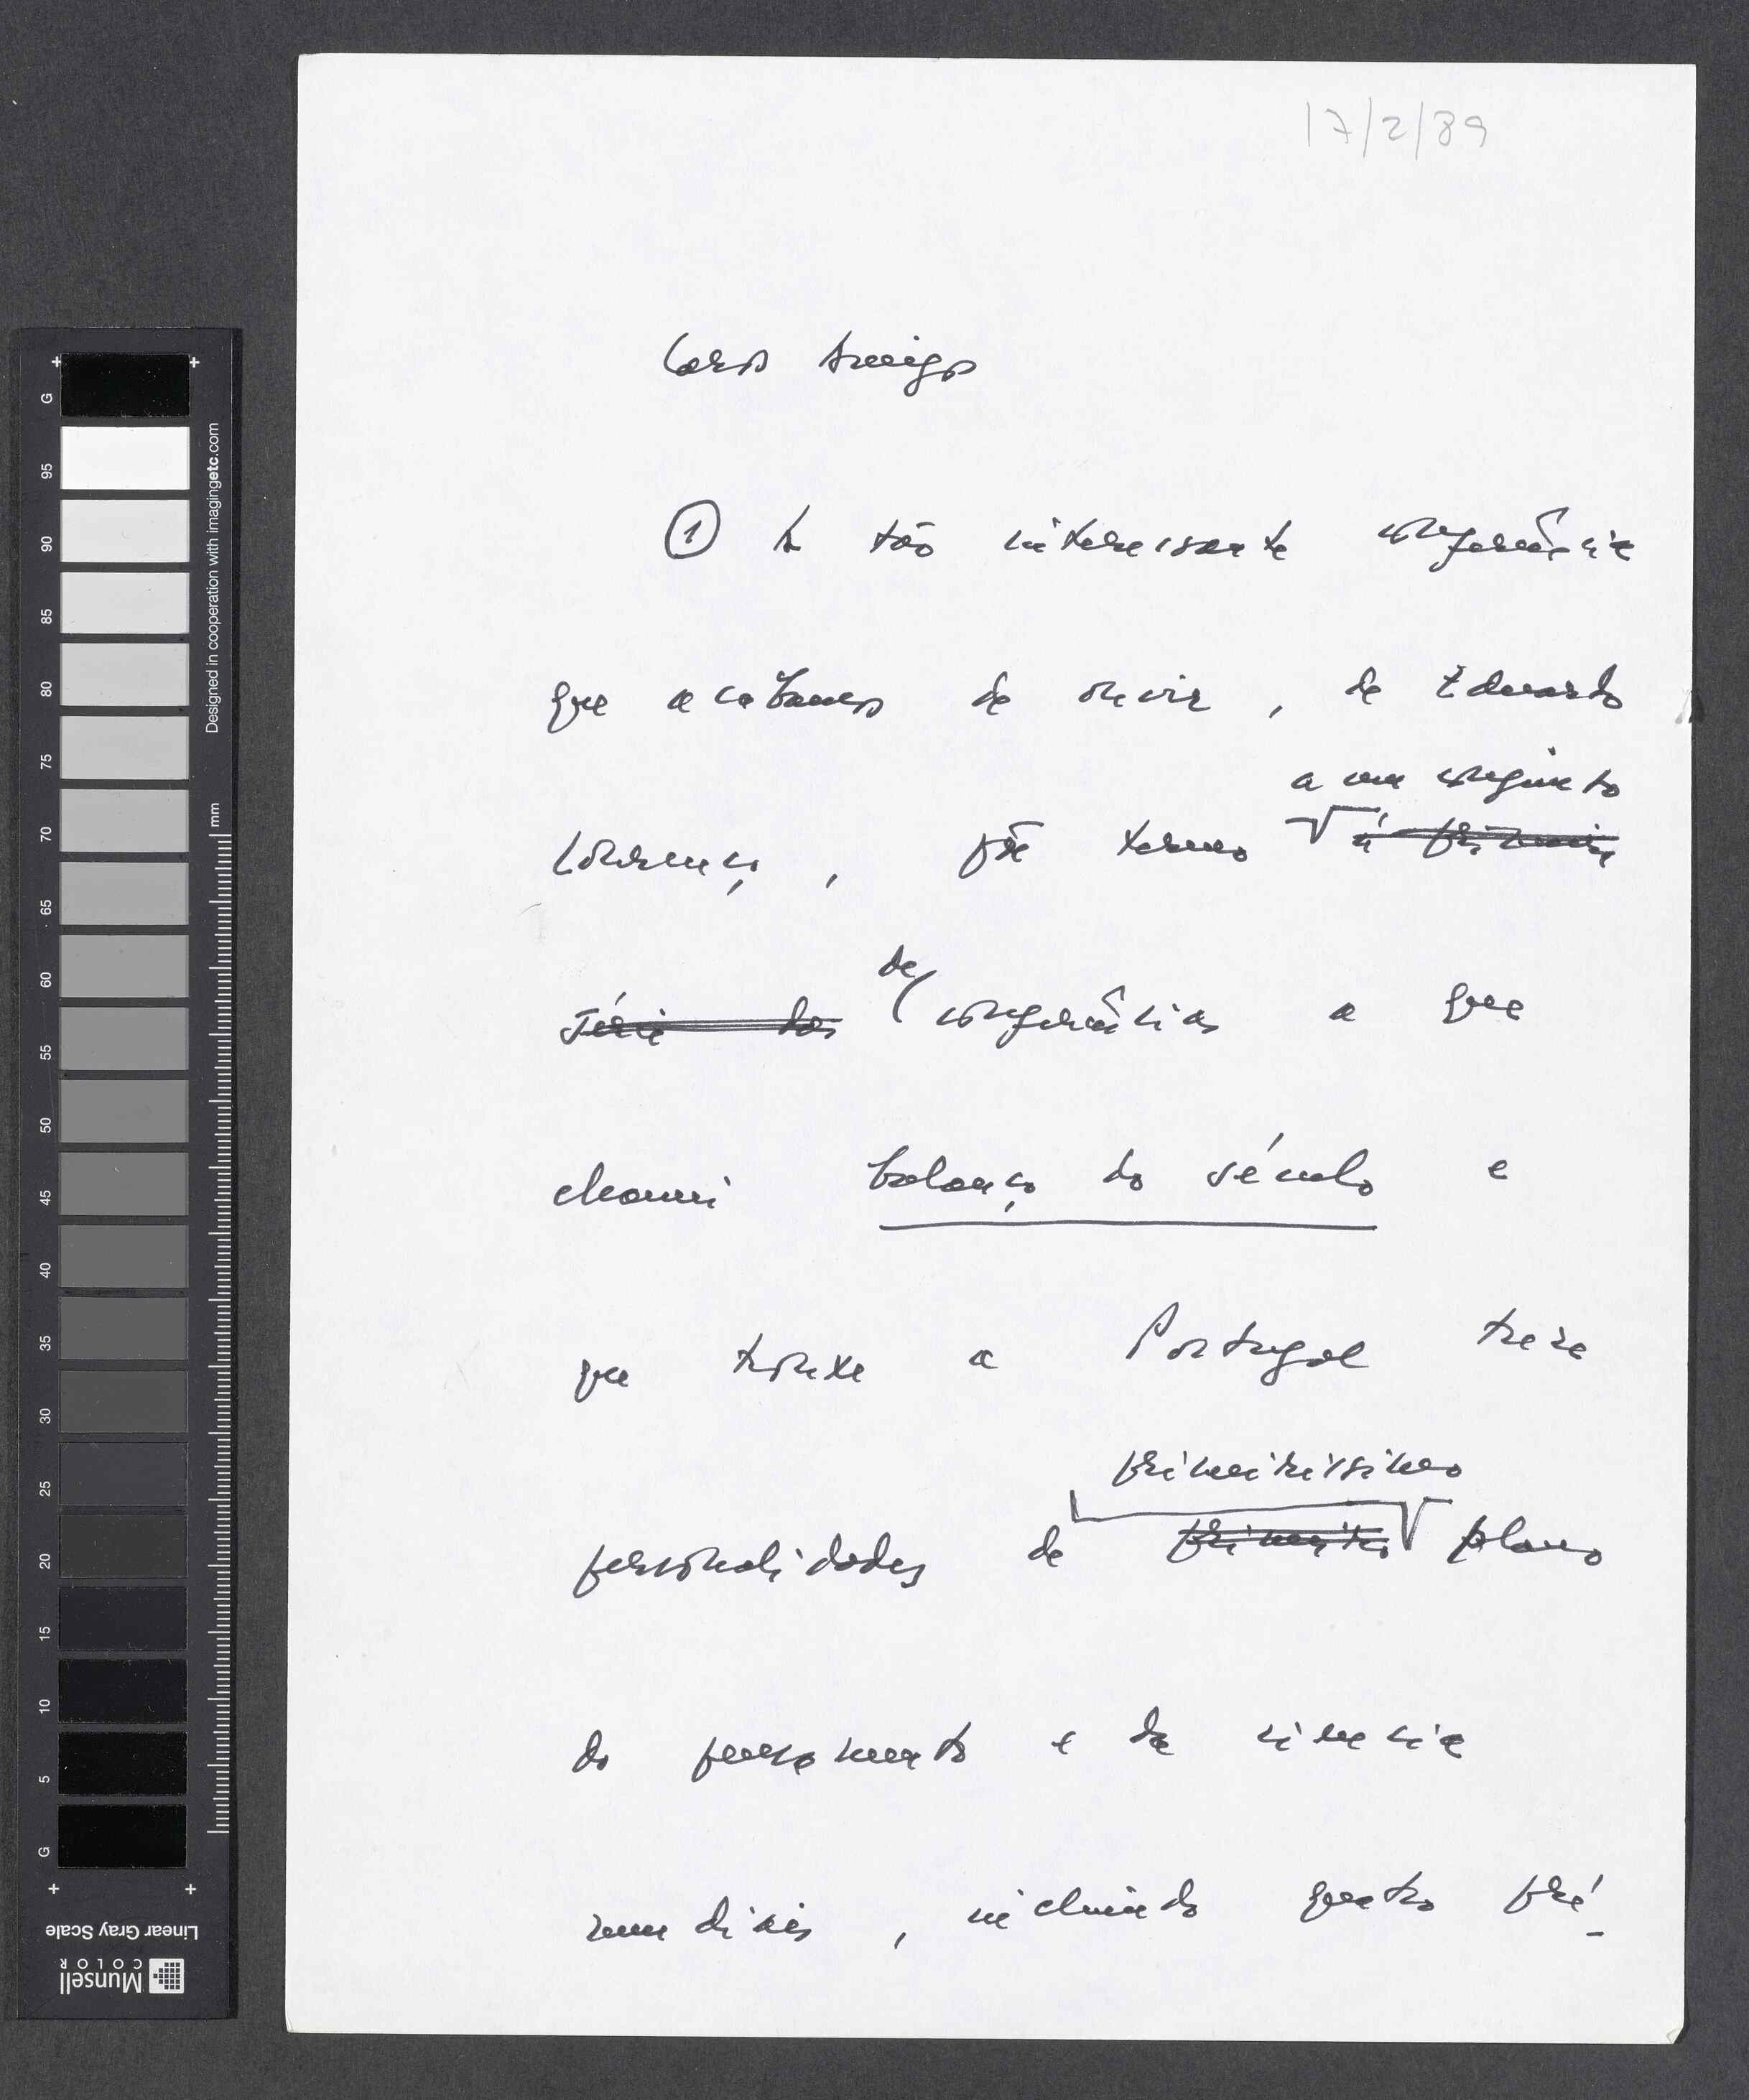 17/2/89
Caros Amigos
① A tão interessante conferência
que acabamos de ouvir, de Eduardo
a um conjunto
Lourenço, põe termo à primeira
de
série das conferências a que
chamei balanço do século e
que trouxe a Portugal treze
primeiríssimo
personalidades de primeiro plano
do pensamento e da ciência
mundiais, incluindo quatro pré-
G
95
90
85
80
75
70
65
60
55
50
45
40
35
30
25
20
15
10
5
G
mm
Designed in cooperation with imagingetc.com
Linear Gray Scale
Munsell
COLOR